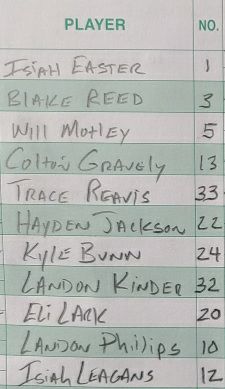 PLAYER NO.
Isiah Easter 1
Blake Reed 3
Will Motley 5
Colton Gravely 13
Trace Reavis 33
Hayden Jackson 22
Kyle Bunn 24
Landon Kinder 32
Eli Lark 20
Landon Phillips 10
Isiah Leagans 12